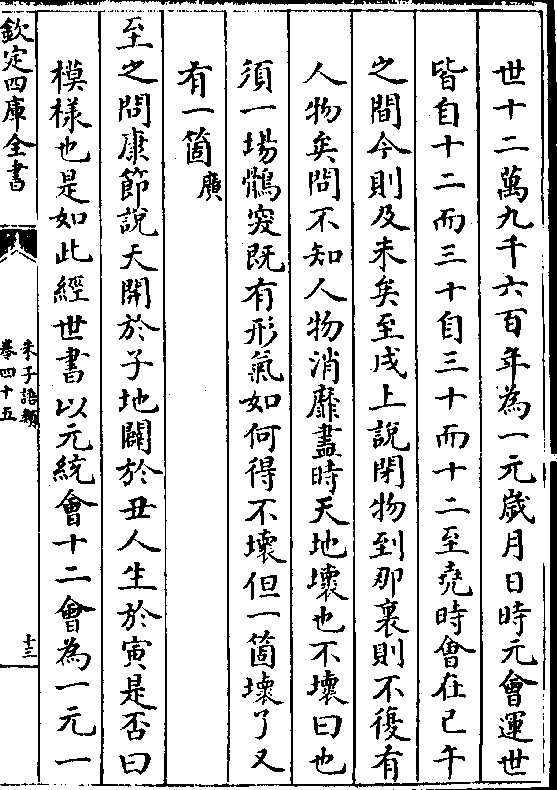 世十二萬九千六百年為一元歳月日時元會運世
皆自十二而三十自三十而十二至堯時會在巳午
之間今則及未矣至戌上說閉物到那裏則不復有
人物矣問不知人物消靡盡時天地壞也不壞曰也
須一場鶻突既有形氣如何得不壞但一箇壞了又
有一箇廣
至之問康節說天開於子地闢於丑人生於寅是否曰
模樣也是如此經世書以元統會十二會為一元一
欽定四庫全書
朱子語類
卷四十五
十三